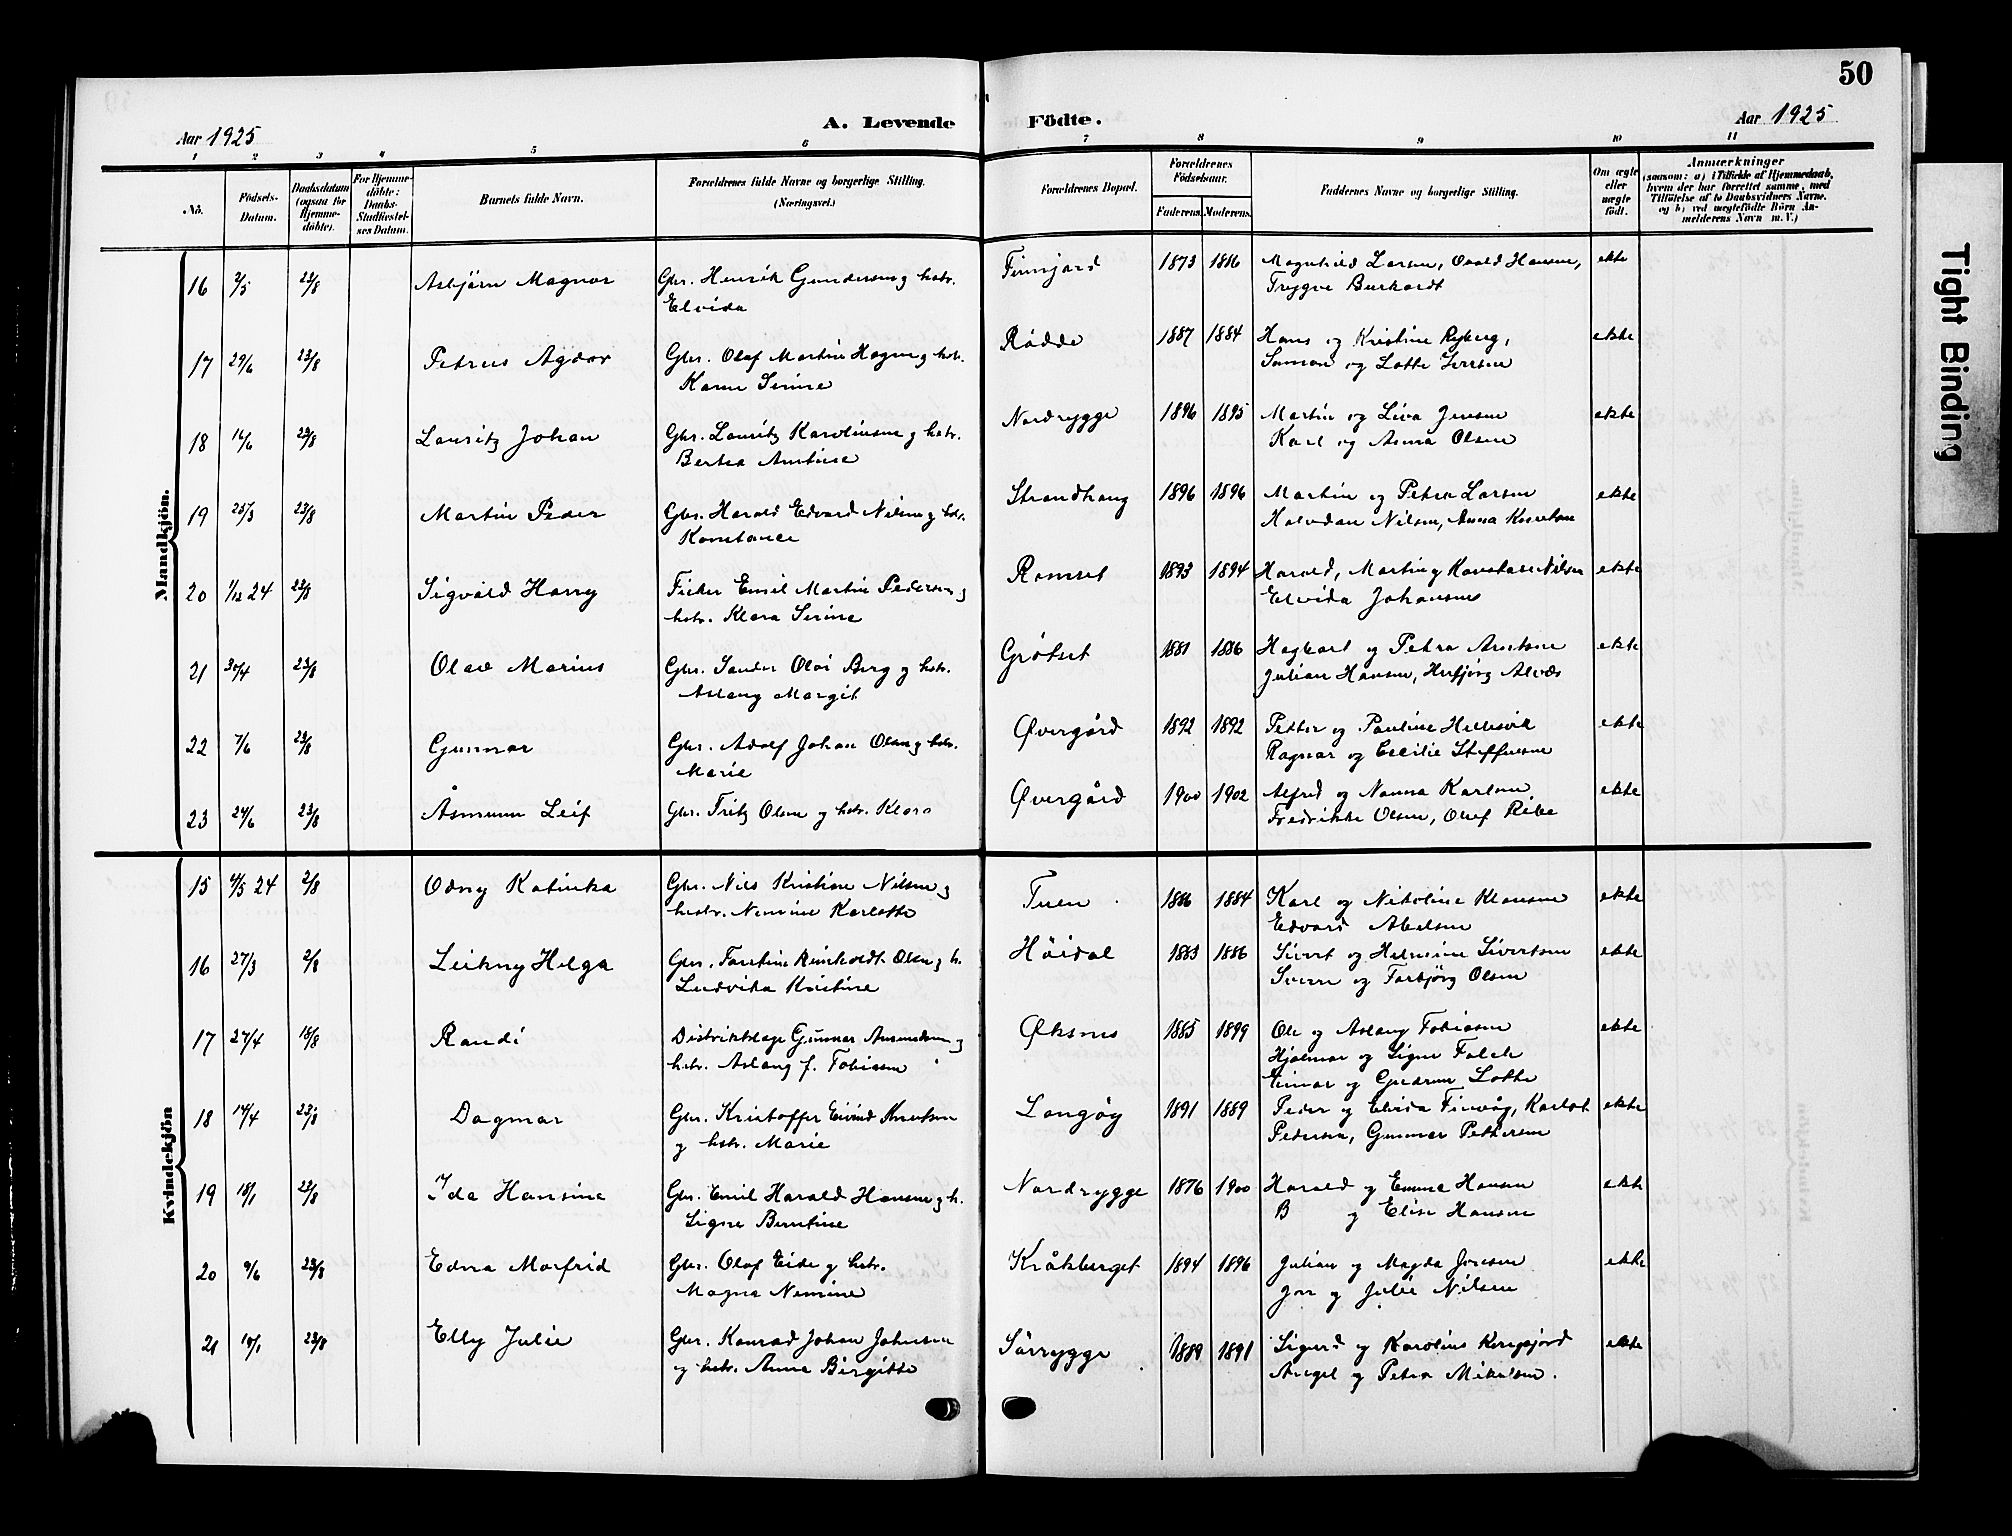 50
A. Levende Födte.
Aar 1925
Aar 1925
1 2 3 4 5 6 7 8 9 10 11
No.
Födsels-Datum.
Daabsdatum (ogsaa for Hjemme-döbte).
For Hjemme-döbte: Daabs-Stadfæstel-ses Datum.
Barnets fulde Navn.
Forældrenes fulde Navne og borgerlige Stilling.
(Næringsvei.)
Forældrenes Bopæl.
Forældrenes Födselsaar.
Faderens. Moderens.
Faddernes Navne og borgerlige Stilling.
Om ægte eller uægte födt.
Anmærkninger
(saasom: a) i Tilfælde af Hjemmedaab, hvem der har forrettet samme, med Tilföielse af to Daabsvidners Navne, og b) ved uægtefödte Börn An-melderens Navn m. V.)
Mandkjön.
16 2/5 23/8 Asbjørn Magnor Gbr. Henrik Gundersen og hstr. Finnjord 1873 1886 Magnhild Larsen, Osvald Hansen, ekte
Elvida Trygve Burkardt
17 29/6 23/8 Petrus Agdor Gbr. Olaf Martin Hagen og hstr. Rødde 1887 1884 Hans og Kristine Ryberg, ekte
Karen Serine Samson og Lotte Iversen
18 16/6 23/8 Lauritz Johan Gbr. Lauritz Karolinsen og hstr. Nordrygge 1896 1895 Martin og Liva Jensen ekte
Bertea Arntine Karl og Anna Olsen
19 25/3 23/8 Martin Peder Gbr. Harald Edvard Nilsen og hstr. Strandhaug 1896 1896 Martin og Petra Larsen ekte
Konstance Halvdan Nilsen, Anna Knutsen
20 1/12 24 23/8 Sigvald Harry Fisker Emil Martin Pedersen og Romset 1893 1894 Harald, Martin og Konstanse Nilsen ekte
hstr. Klara Serine Elvida Johansen
21 30/4 23/8 Olav Marius Gbr. Sander Olai Berg og hstr. Grøtset 1881 1886 Hagbart og Petra Arntsen ekte
Aslaug Margit Julian Hansen, Herbjørg Alvæs
22 7/6 23/8 Gunnar Gbr. Adolf Johan Olsen og hstr. Øvergård 1892 1892 Petter og Pauline Hillesvik ekte
Marie Ragnar og Cecilie Steffensen
23 24/6 23/8 Åsmunn Leif Gbr. Fritz Olsen og hstr. Klara Øvergård 1900 1902 Alfred og Nanna Karlsen ekte
Fredrikke Olsen, Oluf Ribe
Kvindekjön
15 4/5 24 2/8 Odny Katinka Gbr. Nils Kristian Nilsen og Tuen 1886 1884 Karl og Nikoline Klausen ekte
hstr. Nemine Karlotte Edvard Abelsen
16 27/3 2/8 Leikny Helga Gbr. Tarstine Reinholdt Olsen og h. Høidal 1883 1886 Sivert og Helmine Sivertsen ekte
Ludvika Kristine Sverre og Torbjørg Olsen
17 27/4 18/8 Randi Distriktslege Gunnar Amundsen og Øksnes 1885 1899 Ole og Aslaug Tobiasen ekte
hstr. Aslaug f. Tobiasen Hjalmar og Signe Falch
Einar og Gudrun Lotte
18 14/4 23/8 Dagmar Gbr. Kristoffer Eivind Knutsen Langøy 1891 1889 Peder og Elvida Finvåg, Karlot ekte
og hstr. Marie Pedersen, Gunnar Pettersen
19 18/1 23/8 Ida Hansine Gbr. Emil Harald Hansen og h. Nordrygge 1876 1900 Harald og Emma Hansen ekte
Signe Berntine B og Elise Hansen
20 9/6 23/8 Edna Morfrid Gbr. Olaf Eide og hstr. Kråkberget 1894 1896 Julian og Magda Jensen ekte
Magna Nemine Jon og Julie Nilsen
21 10/1 23/8 Elly Julie Gbr. Konrad Johan Johnsen Sørrygge 1889 1891 Sigurd og Karoline ekte
og hstr. Anna Birgitte og Petra Mikalsen.
Tight Binding